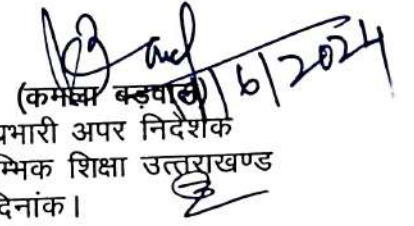 /6/2024
(कमला बड़वाल)
प्रभारी अपर निदेशक
म्भिक शिक्षा उत्तराखण्ड
दिनांक।